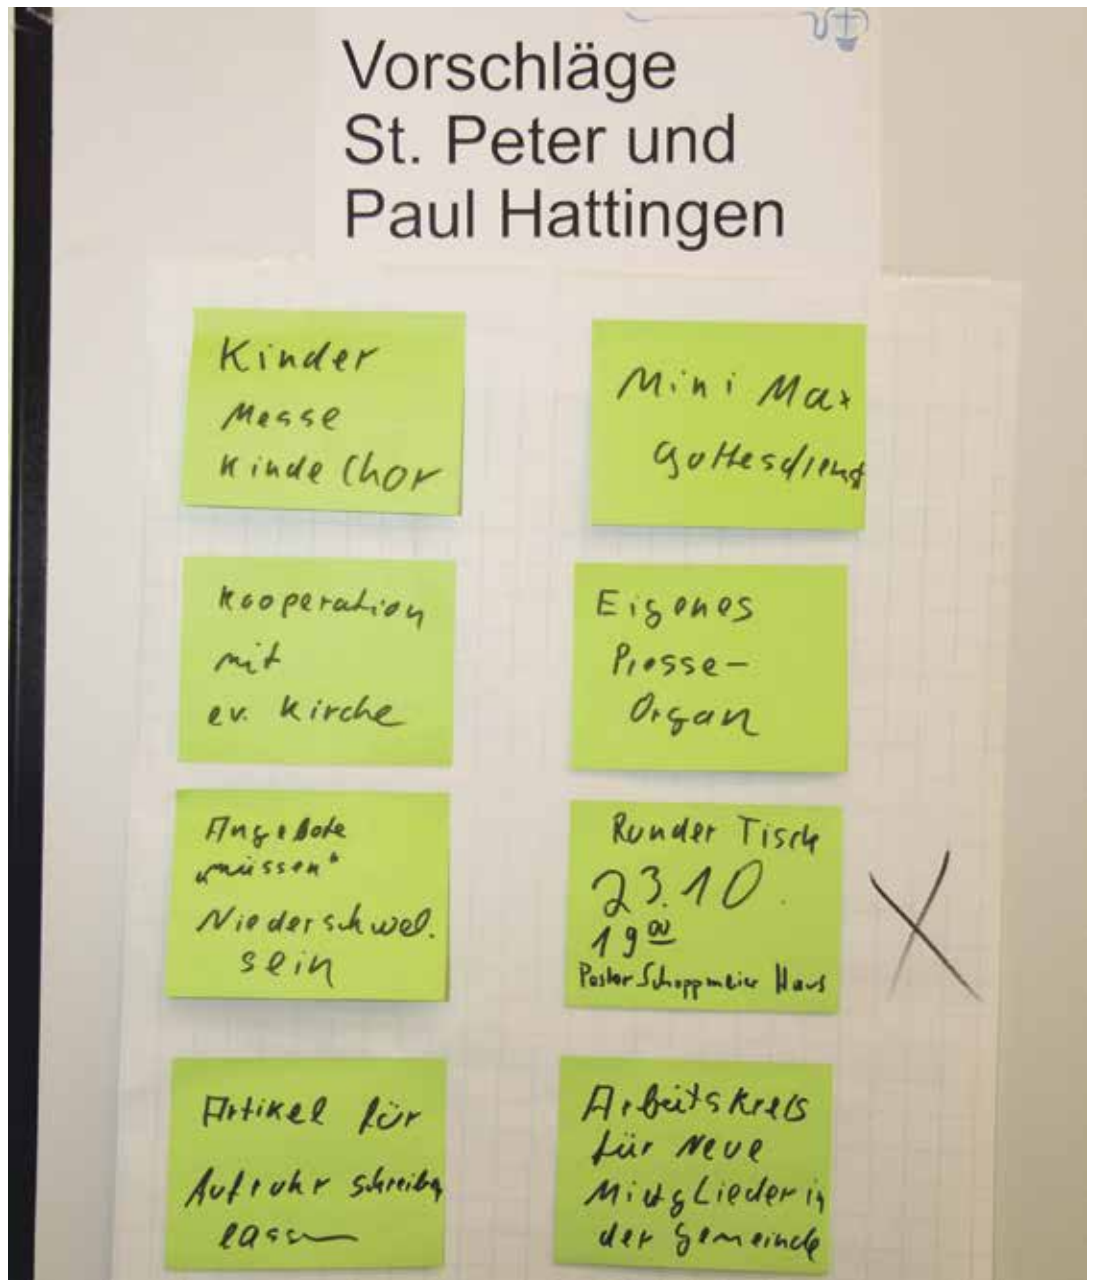 Vorschläge
St. Peter und
Paul Hattingen
Kinder
Messe
Kinde Chor
Mini Max
Gottesdienst
Kooperation
mit
ev. Kirche
Eigenes
Presse-
Organ
Angebote
„müssen“
Niederschwel.
sein
Runder Tisch
23.10.
19 00
Pastor Schoppmeier Haus
Artikel für
Aufruhr schreiben
lassen
Arbeitskreis
für Neue
Mitglieder in
der Gemeinde